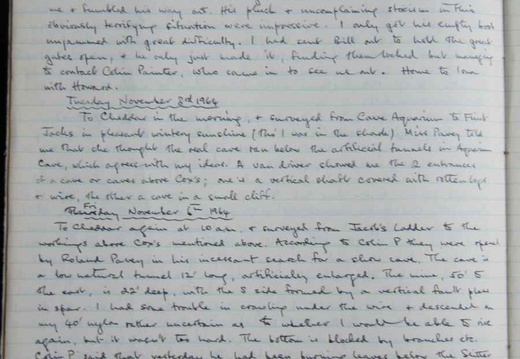 me & fumbled his way out. His pluck & uncomplaining stoicism in this
obviously terrifying situation were impressive. I only got his empty boot
unjammed with great difficulty. I had sent Bill out to hold the great
gates open, & he only just made it, finding them locked but managing
to contact Colin Painter, who came in to see us out. Home to
with Howard.
Tuesday November 3rd 1964
To Cheddar in the morning, & surveyed from Cave Aquarium to Flint
Jacks in pleasant wintery sunshine (tho' I was in the shade). Miss Pavey told
me that she thought the real cave ran below the artificial tunnels in Aquarium
Cave, which agrees with my ideas. A van driver showed me the 2 entrances
of a cave or caves above Cox's; one is a vertical shaft covered with rotten logs
& wire, the other a cave in a small cliff.
Fri
Thursday November 6th 1964
To Cheddar again at 10 a.m. & surveyed from Jacob's Ladder to the
workings above Cox's mentioned above. According to Colin P they were opened
by Roland Pavey in his incessant search for a show cave. The cave is
a low natural tunnel 12' long, artificially enlarged. The mine, 50' to
the east, is 22' deep, with the S side formed by a vertical fault plane
in spar. I had some trouble in crawling under the wire & descended on
my 40' nylon rather uncertain as to whether I would be able to rise
again, but it wasn't too hard. The bottom is blocked by branches etc.
Colin P said that yesterday he had been burning leaves below the Slitter